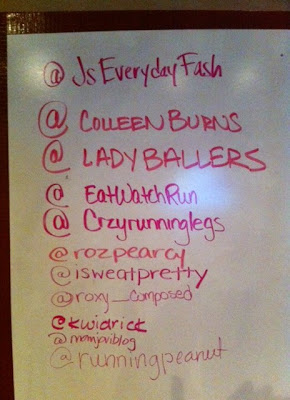 @ JsEverydayFash
@ COLLEENBURNS
@ LADYBALLERS
@ EatWatchRun
@ Crzyrunninglegs
@rozpearcy
@isweatpretty
@roxy_composed
@kwidrick
@momjoviblog
@runningpeanut